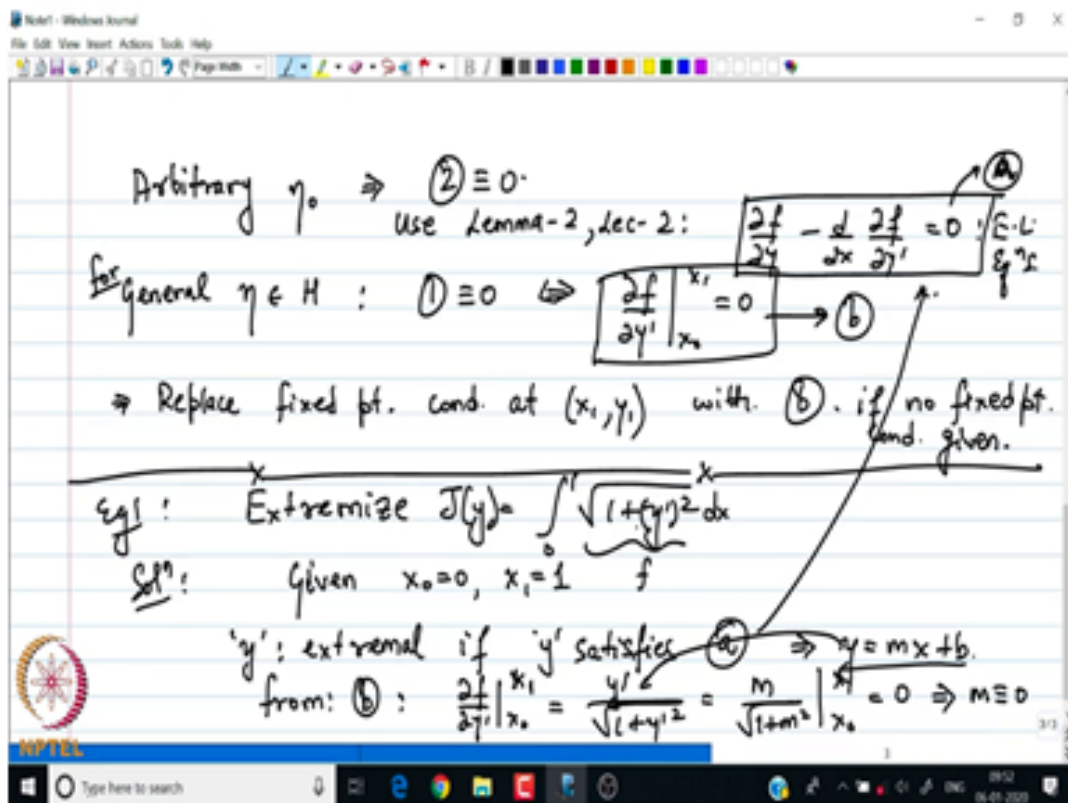 Note1 - Windows Journal
File Edit View Insert Actions Tools Help
Page Width
B I
Arbitrary η₀ ⇒ ② ≡ 0.
Use Lemma-2, Lec-2: ∂f/∂y - d/dx ∂f/∂y' = 0 : E-L Eqⁿs → ⓐ
for General η ∈ H : ① ≡ 0 ⇔ ∂f/∂y' |_{x₀}^{x₁} = 0 → ⓑ
⇒ Replace fixed pt. cond. at (x₁, y₁) with ⓑ. if no fixed pt. cond. given.
Eg1: Extremize J(y) = ∫₀¹ √(1+(y')²) dx
Solⁿ: Given x₀=0, x₁=1 f
'y': extremal if 'y' satisfies ⓐ ⇒ y = mx+b.
from: ⓑ : ∂f/∂y' |_{x₀}^{x₁} = y'/√(1+y'²) = m/√(1+m²) |_{x₀}^{x₁} = 0 ⇒ m ≡ 0
NPTEL
3/3
3
Type here to search
ENG
09:52
06-01-2020